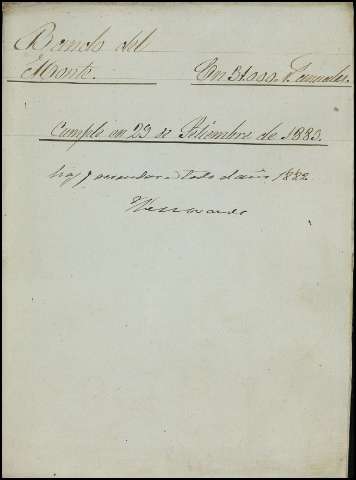 Bando del
Monte. En $1.000. Anuales.
Cumple en 29 de Setiembre de 1883.
hoy y todo el año 1882